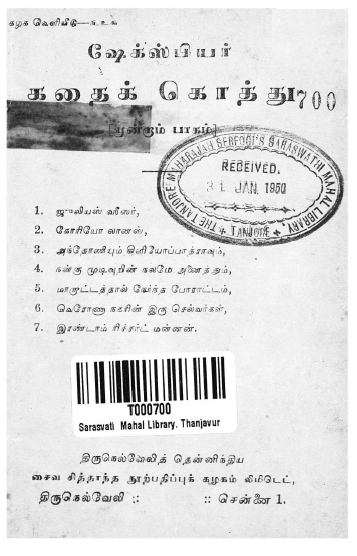 கழக வெளியீடு—௩௨௬
ஷேக்ஸ்பியர்
கதைக் கொத்து
700
[மூன்றாம் பாகம்]
THE TANJORE MAHARAJAH SERFOGI'S SARASWATHI MAHAL LIBRARY,
RECEIVED.
31 JAN. 1950
TANJORE
1. ஜூலியஸ் ஸீஸர்,
2. கோரியோ லானஸ்,
3. அந்தோணியும் கிளியோப்பாத்ராவும்,
4. நன்கு முடிவுறின் நலமே அனைத்தும்,
5. மாறாட்டத்தால் நேர்ந்த போராட்டம்,
6. வெரோணா நகரின் இரு செல்வர்கள்,
7. இரண்டாம் ரிச்சர்ட் மன்னன்.
T000700
Sarasvati Mahal Library, Thanjavur
திருநெல்வேலித் தென்னிந்திய
சைவ சித்தாந்த நூற்பதிப்புக் கழகம் லிமிடெட்,
திருநெல்வேலி :: :: சென்னை 1.